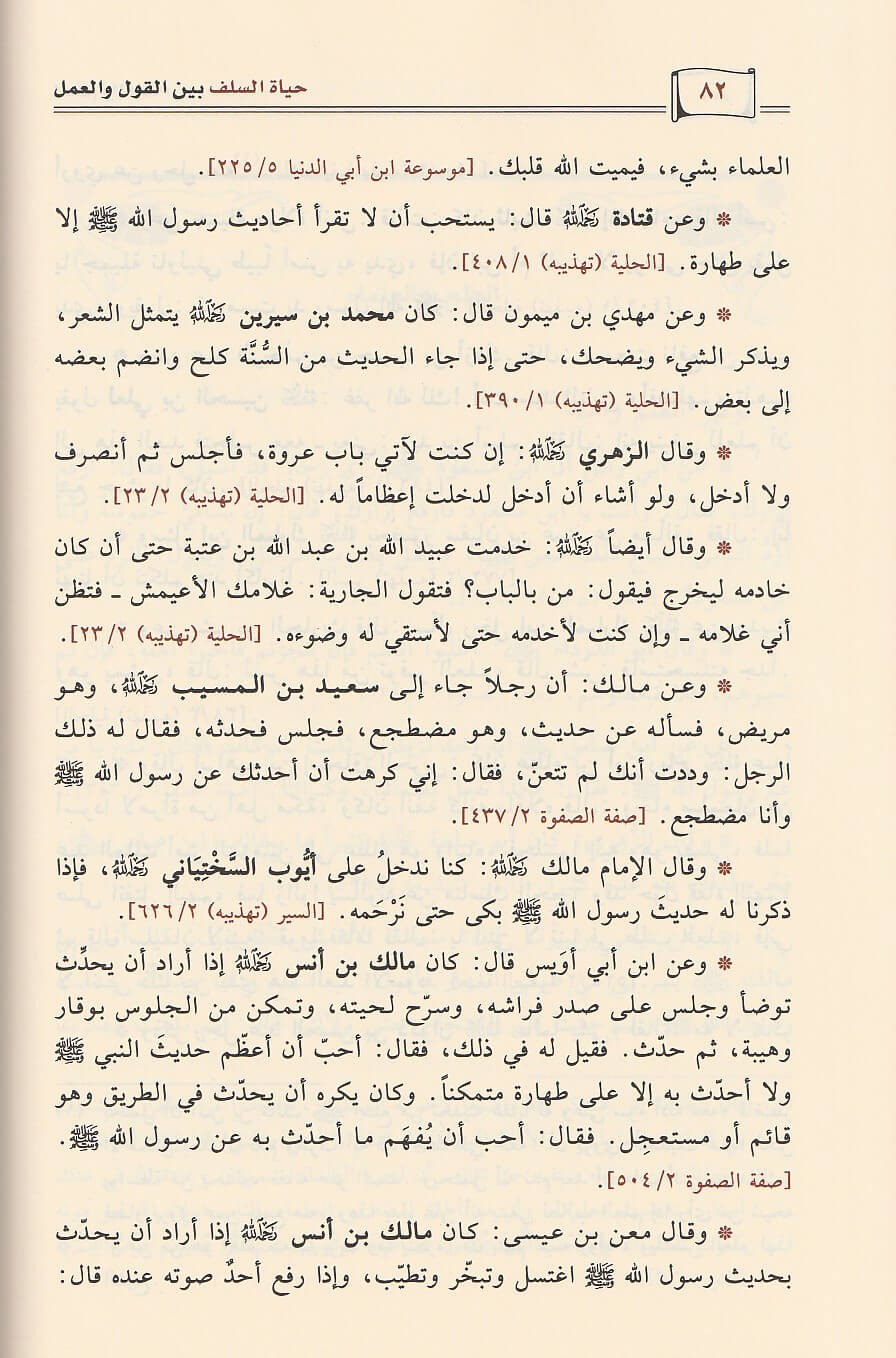 ٨٢
حياة السلف بين القول والعمل
العلماء بشيء، فيميت الله قلبك. [موسوعة ابن أبي الدنيا ٥/ ٢٢٥].
* وعن قتادة رَحِمَهُ اللَّهُ قال: يستحب أن لا تقرأ أحاديث رسول الله ﷺ إلا
على طهارة. [الحلية (تهذيبه) ١/ ٤٠٨].
* وعن مهدي بن ميمون قال: كان محمد بن سيرين رَحِمَهُ اللَّهُ يتمثل الشعر،
ويذكر الشيء ويضحك، حتى إذا جاء الحديث من السُّنَّة كلح وانضم بعضه
إلى بعض. [الحلية (تهذيبه) ١/ ٣٩٠].
* وقال الزهري رَحِمَهُ اللَّهُ: إن كنت لآتي باب عروة، فأجلس ثم أنصرف
ولا أدخل، ولو أشاء أن أدخل لدخلت إعظاماً له. [الحلية (تهذيبه) ٢/ ٢٣].
* وقال أيضاً رَحِمَهُ اللَّهُ: خدمت عبيد الله بن عبد الله بن عتبة حتى أن كان
خادمه ليخرج فيقول: من بالباب؟ فتقول الجارية: غلامك الأعيمش ـ فتظن
أني غلامه ـ وإن كنت لأخدمه حتى لأستقي له وضوءه. [الحلية (تهذيبه) ٢/ ٢٣].
* وعن مالك: أن رجلاً جاء إلى سعيد بن المسيب رَحِمَهُ اللَّهُ، وهو
مريض، فسأله عن حديث، وهو مضطجع، فجلس فحدثه، فقال له ذلك
الرجل: وددت أنك لم تتعنّ، فقال: إني كرهت أن أحدثك عن رسول الله ﷺ
وأنا مضطجع. [صفة الصفوة ٢/ ٤٣٧].
* وقال الإمام مالك رَحِمَهُ اللَّهُ: كنا ندخلُ على أيُّوب السَّخْتِيَاني رَحِمَهُ اللَّهُ، فإذا
ذكرنا له حديثَ رسول الله ﷺ بكى حتى نَرْحَمه. [السير (تهذيبه) ٢/ ٦٢٦].
* وعن ابن أبي أوَيس قال: كان مالك بن أنس رَحِمَهُ اللَّهُ إذا أراد أن يحدِّث
توضأ وجلس على صدر فراشه، وسرّح لحيته، وتمكن من الجلوس بوقار
وهيبة، ثم حدّث. فقيل له في ذلك، فقال: أحبّ أن أعظّم حديثَ النبي ﷺ
ولا أحدّث به إلا على طهارة متمكناً. وكان يكره أن يحدّث في الطريق وهو
قائم أو مستعجِل. فقال: أحب أن يُفهَم ما أحدّث به عن رسول الله ﷺ.
[صفة الصفوة ٢/ ٥٠٤].
* وقال معن بن عيسى: كان مالك بن أنس رَحِمَهُ اللَّهُ إذا أراد أن يحدّث
بحديث رسول الله ﷺ اغتسل وتبخّر وتطيّب، وإذا رفع أحدٌ صوته عنده قال: